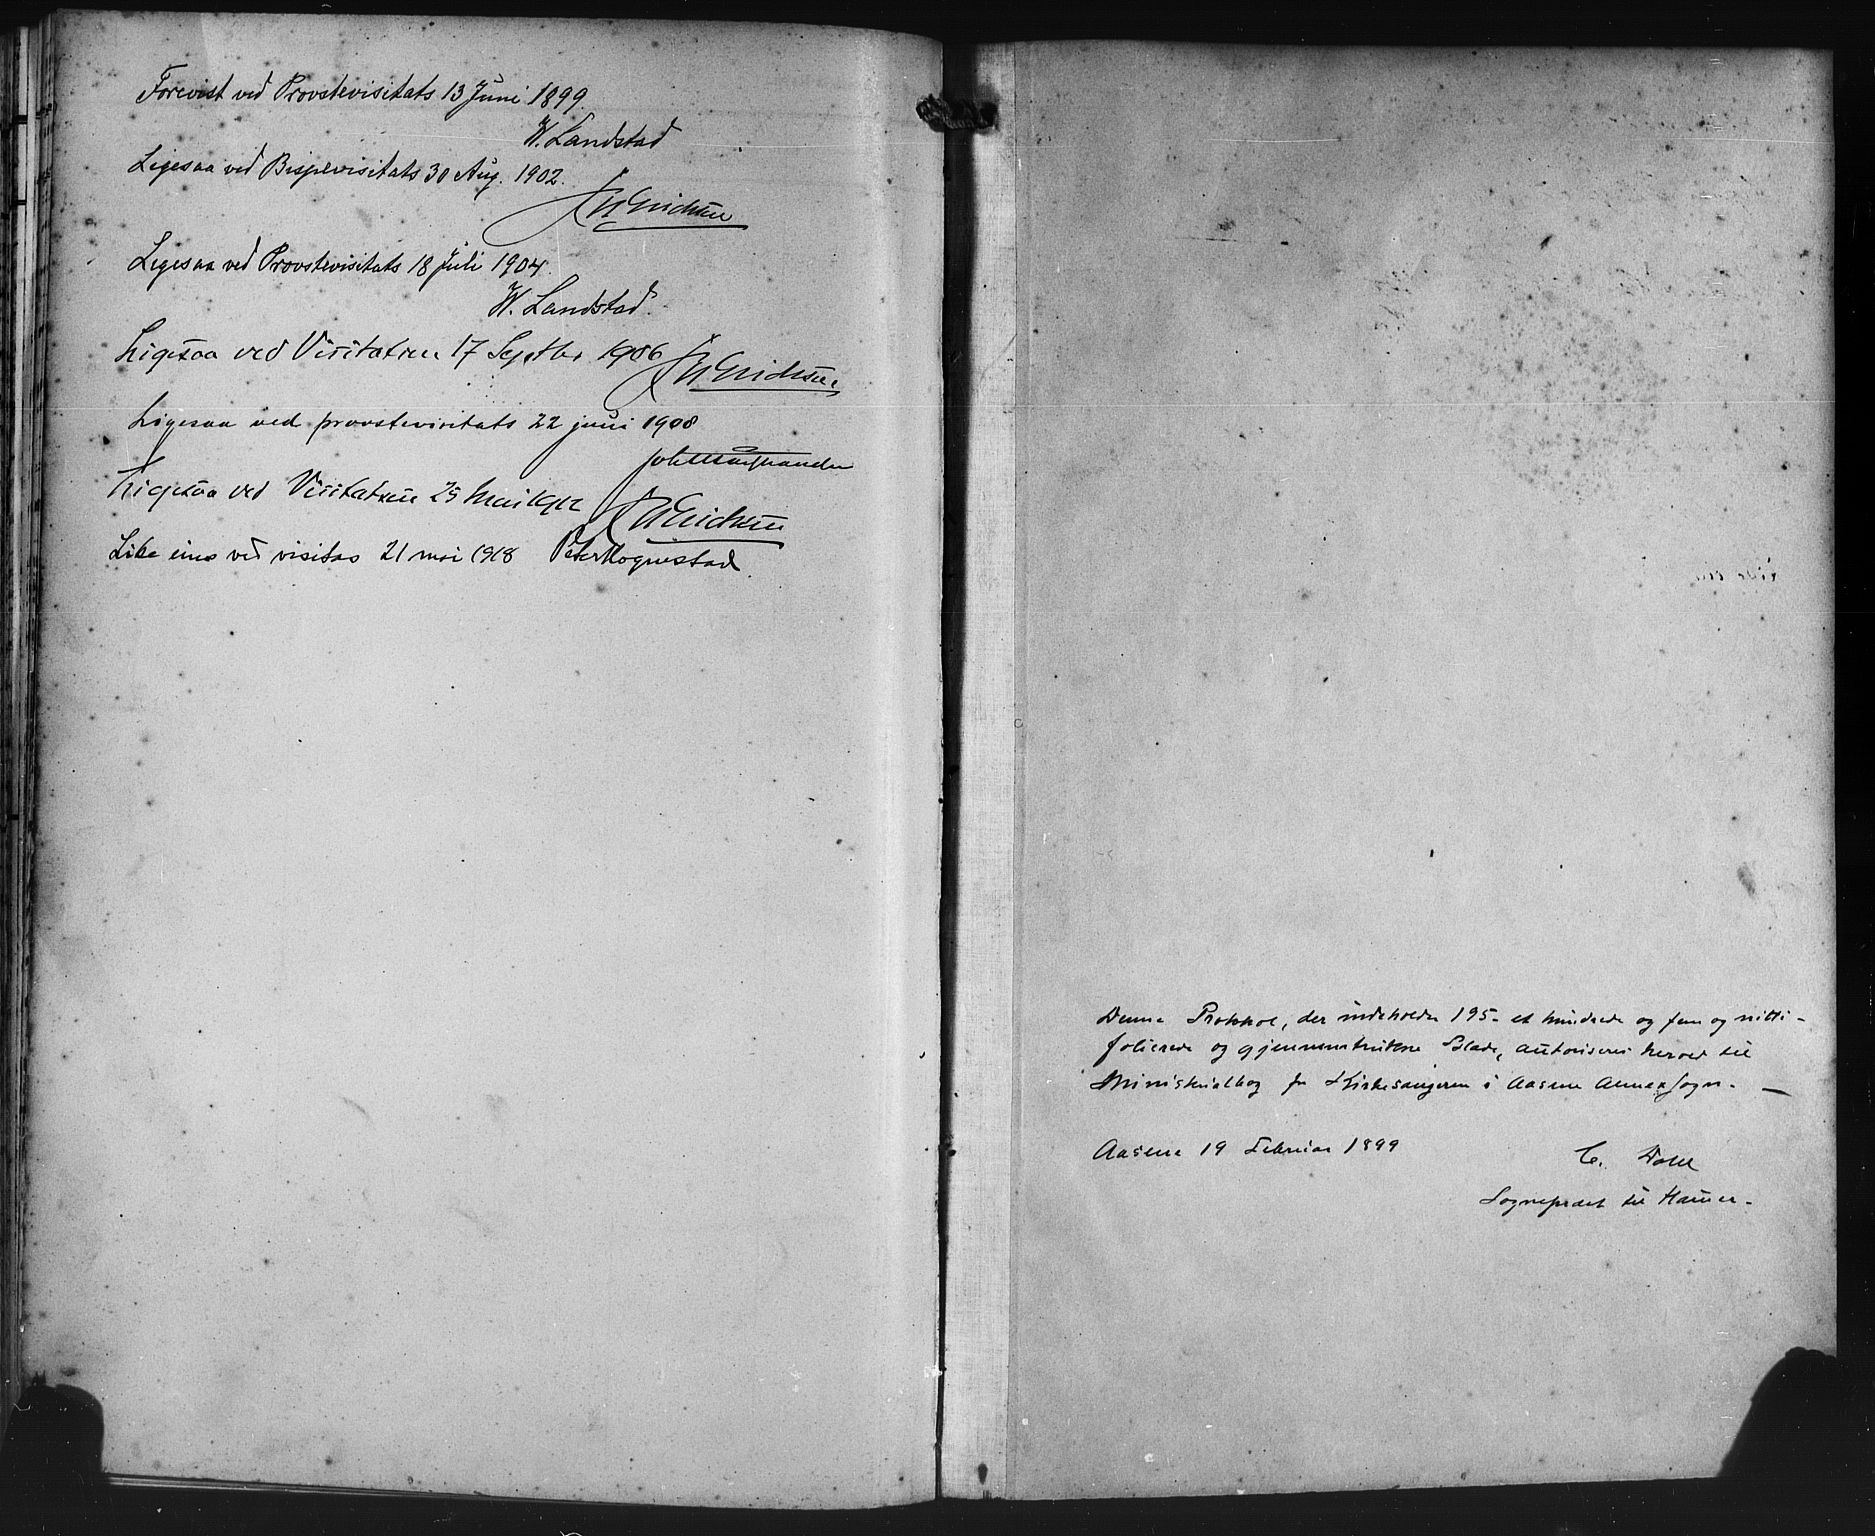 Forevist ved Provstevisitats 13 Juni 1899.
W. Landstad
Ligesaa ved Bispevisitats 30 Aug. 1902.
Ligesaa ved Provstevisitats 18 Juli 1904.
W. Landstad.
Ligesaa ved Visitatsen 17 Septbr. 1906
Ligesaa ved provstevisitats 22 juni 1908
Ligesaa ved Visitatsen 25 Mai 1912
Like eins ved visitas 21 mai 1918 Peter Hognestad.
Denne Protokol, der indeholder 195 - et hundrede og fem og nitti -
folierede og gjennemtrukne Blade, autoriseres herved til
Ministerialbog for Kirkesangeren i Aasene Annex Sogn. —
Aasene 19 Februar 1899
C. Dahl
Sogneprest til